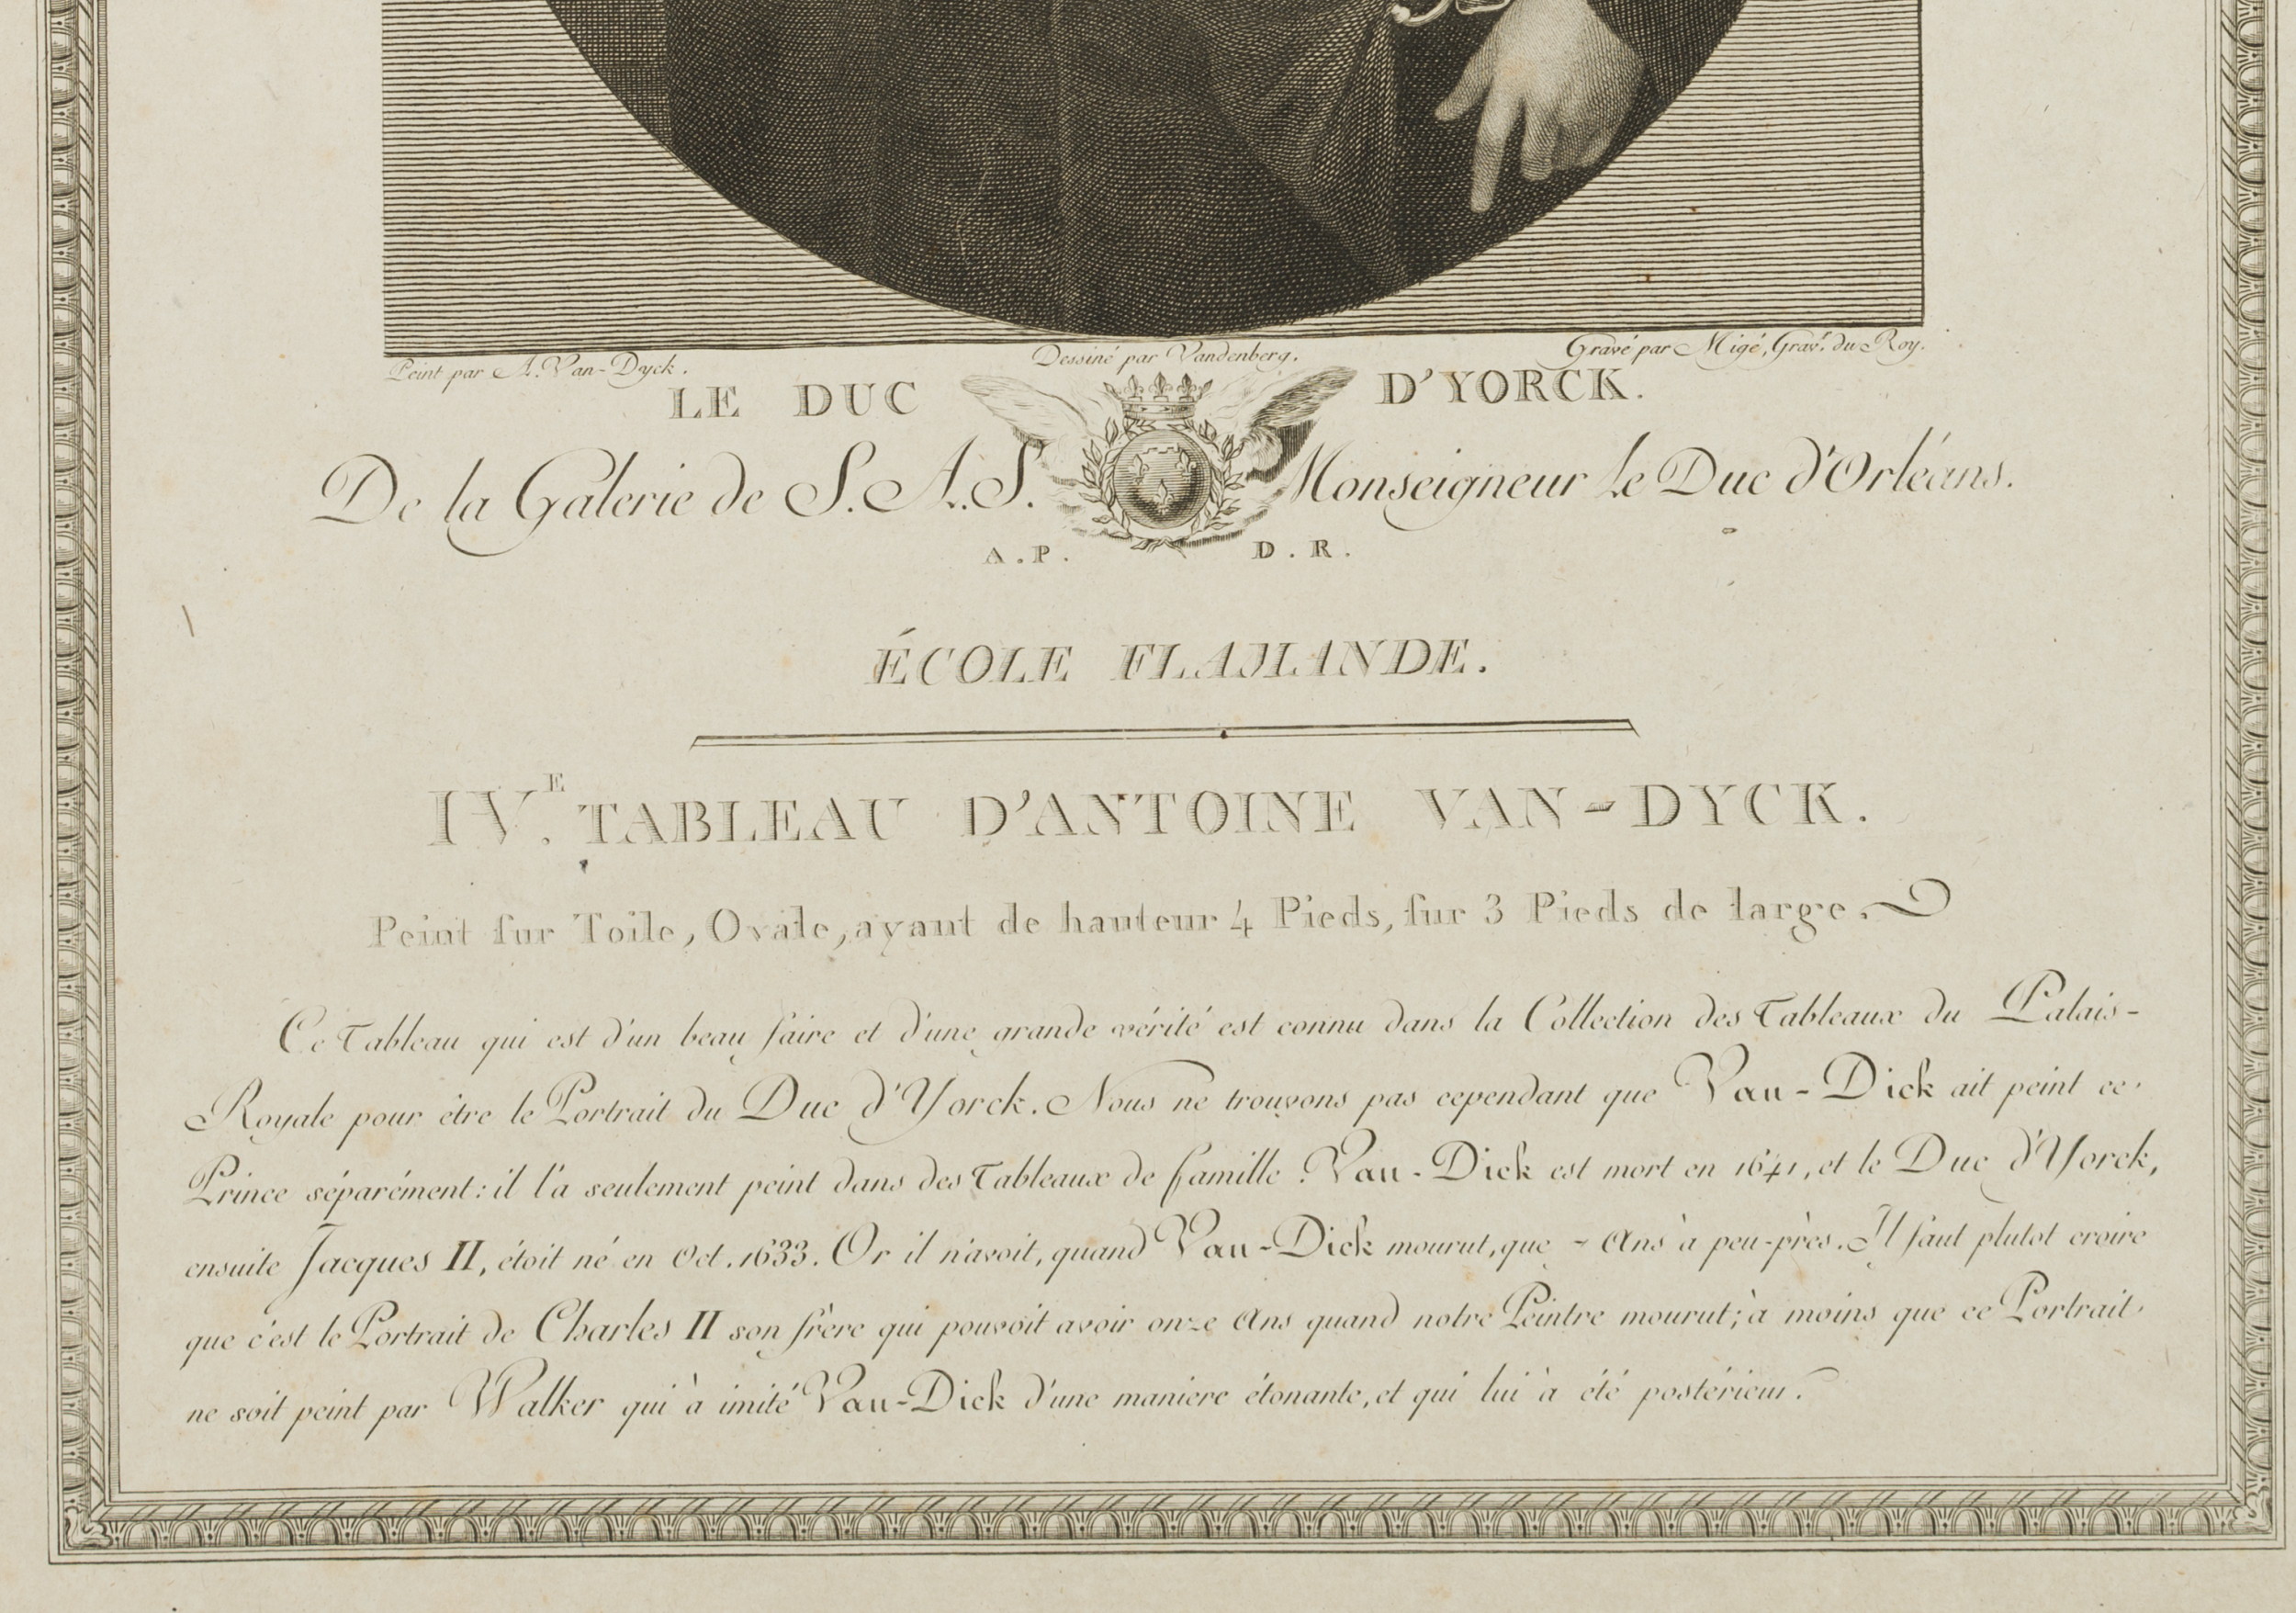 Peint par A. Van-Dyck. Dessiné par Vandenberg. Gravé par Migé, Grav.r du Roy.
LE DUC D'YORCK.
De la Galerie de S. A. S. Monseigneur Le Duc d'Orléans.
A. P. D. R.
ÉCOLE FLAMANDE.
IV.E TABLEAU D'ANTOINE VAN-DYCK.
Peint sur Toile, Ovale, ayant de hauteur 4 Pieds, sur 3 Pieds de large.
Ce Tableau qui est d'un beau faire et d'une grande vérité est connu dans la Collection des Tableaux du Palais-
Royale pour être le Portrait du Duc d'Yorck. Nous ne trouvons pas cependant que Van-Dick ait peint ce
Prince séparément: il l'a seulement peint dans des Tableaux de famille. Van-Dick est mort en 1641, et le Duc d'Yorck,
ensuite Jacques II, étoit né en Oct. 1633. Or il n'avoit, quand Van-Dick mourut, que Ans à peu-près. Il faut plutot croire
que c'est le Portrait de Charles II son frère qui pouvoit avoir onze Ans quand notre Peintre mourut; à moins que ce Portrait
ne soit peint par Walker qui à imité Van-Dick d'une maniere étonante, et qui lui à été postérieur.